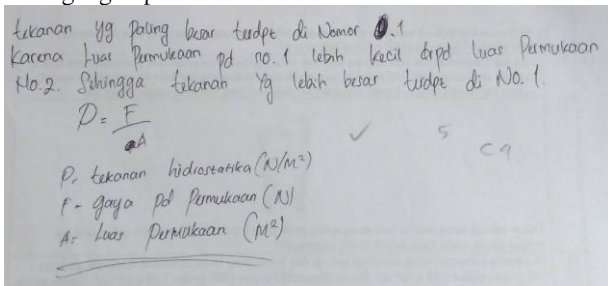 tekanan yg paling besar terdpt di Nomor 1
Karena Luas Permukaan pd no. 1 lebih kecil drpd Luas Permukaan
No.2. Sehingga tekanan yg lebih besar terdpt di No. 1.
P = F
A
P. tekanan hidrostatika (N/m²)
✓ 5 C4
F = gaya pd Permukaan (N)
A = Luas Permukaan (M²)